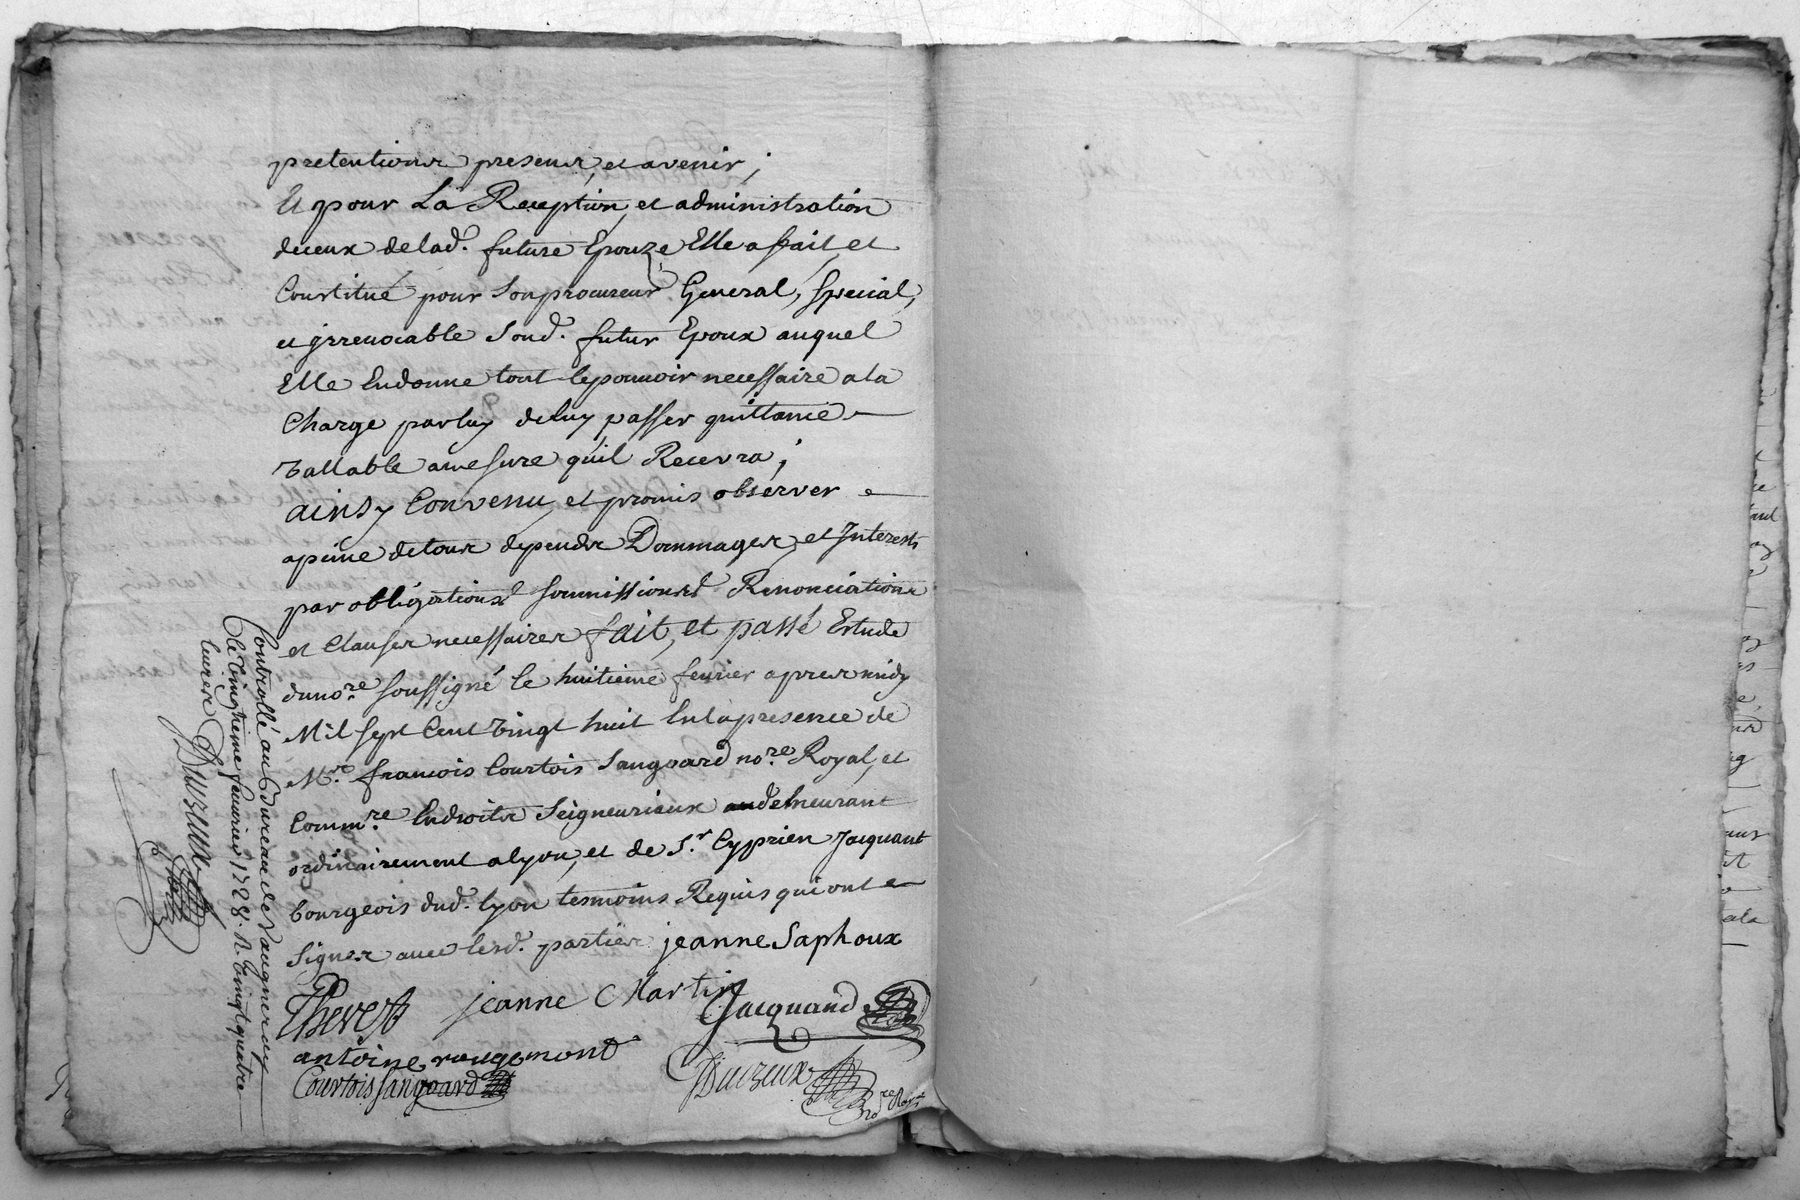 pretentions presens, et avenir;
Et pour La Reception, et administration
deceux delad.e future Epouze Elle a fait, et
Constitué pour Sonprocureur General, special,
et jrreuocable Sond.t futur Epoux auquel
Elle Endonne tout lepouuoir necessaire ala
Charge parluy deluy passer quittance
vallable amesure qu'il Receura;
ainsy Convenu, et promis observer
apeine detous depends Dommages, et Interests
par obligations soumissions Renonciations
et Clauses necessaires fait, et passé Estude
duno.re soussigné le huitieme feurier apres midy
Mil sept Cent vingt huit Enlapresence de
M.re francois Courtois Sangoard no.re Royal, et
Comm.re Endroits Seigneuriaux demeurant
ordinairement alyon, et de S.r Cyprien Jacquant
bourgeois dud. lyon tesmoins Requis qui ont
signez auec lesd. parties jeanne Saphoux
Thevet jeanne Martin Jacquand
antoine rougemond
Courtois Sangoard Duvzeux
no.re Royal
Controllé au Bureau de Vaugneray
Le vingtieme feuurier 1728. R. vingt quatre
liures Duvzeux